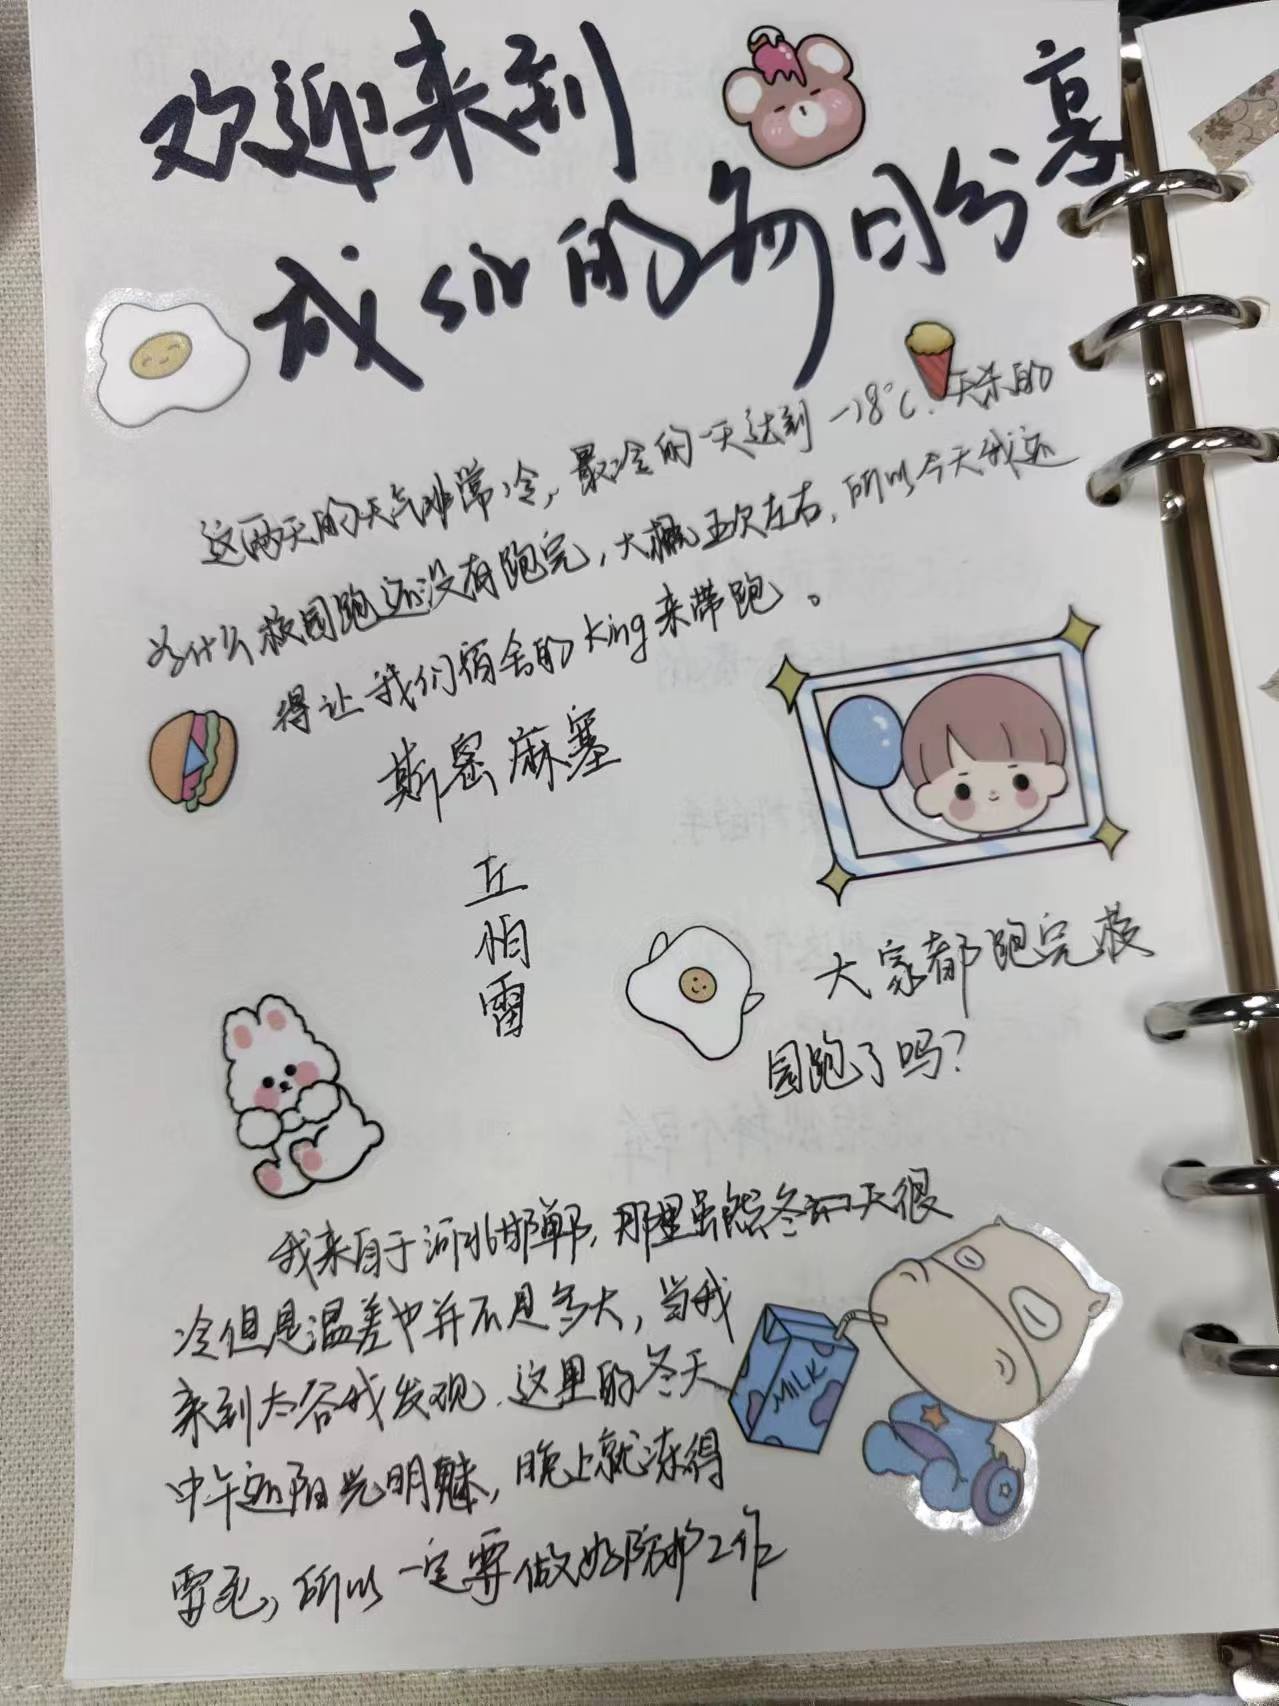 欢迎来到
成sir的每日分享
这两天的天气非常冷，最冷的一天达到-18℃.天杀的
为什么校园跑还没有跑完，大概五次左右，所以今天我还
得让我们宿舍的King来带跑。
斯密麻塞
丘
怕
雷
大家都跑完校
园跑了吗？
我来自于河北邯郸，那里虽然冬天很
冷但是温差也并不是多大，当我
来到太谷我发现，这里的冬天
中午还阳光明魅，晚上就冻得
要死，所以一定要做好防护工作
MILK